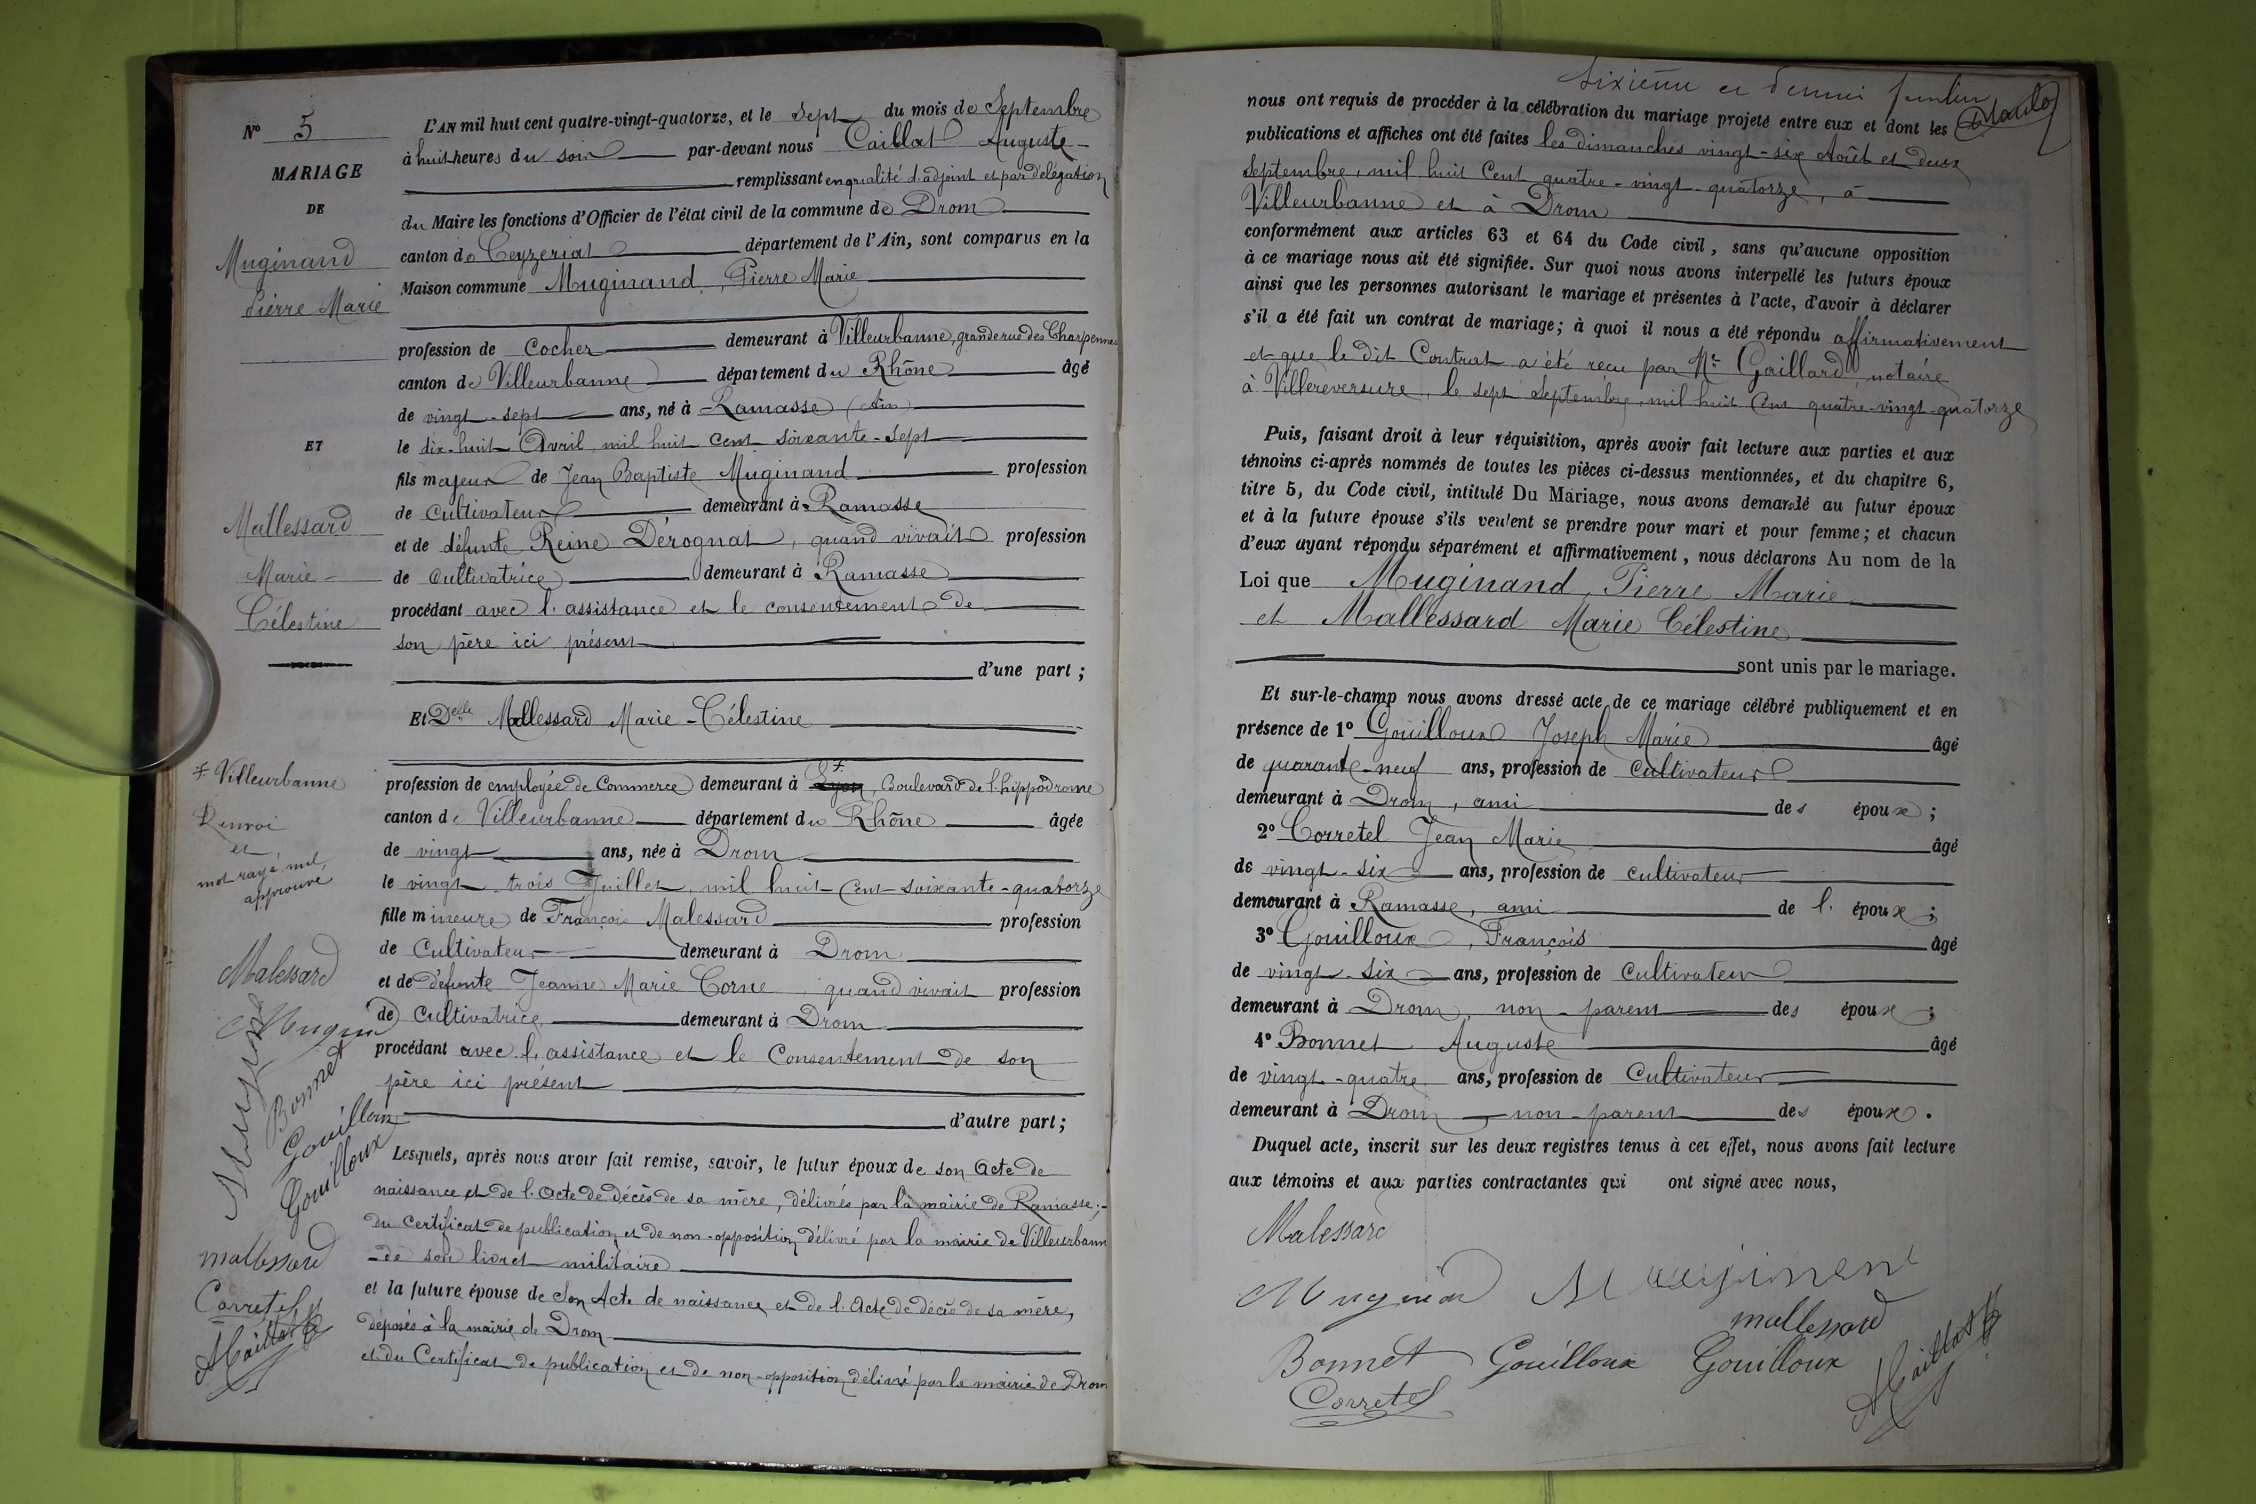 N° 5
MARIAGE
DE
Muginand
Pierre Marie
ET
Mallessard
Marie
Célestine
L'AN mil huit cent quatre-vingt-quatorze, et le Sept du mois de Septembre
à huit heures du soir par-devant nous Caillat Auguste
remplissant en qualité d'adjoint et par délégation
du Maire les fonctions d'Officier de l'état civil de la commune de Drom
canton de Ceyzeriat département de l'Ain, sont comparus en la
Maison commune Muginand, Pierre Marie
profession de Cocher demeurant à Villeurbanne, grande rue des Charpennes
canton de Villeurbanne département du Rhône âgé
de vingt-sept ans, né à Ramasse (Ain)
le dix-huit Avril mil huit cent soixante-sept
fils majeur de Jean Baptiste Muginand profession
de Cultivateur demeurant à Ramasse
et de défunte Reine Dérognat, quand vivait profession
de Cultivatrice demeurant à Ramasse
procédant avec l'assistance et le consentement de
son père ici présent
d'une part ;
Et Delle Mallessard Marie-Célestine
profession de employée de Commerce demeurant à Lyon, Boulevard de l'hippodrome
canton de Villeurbanne département du Rhône âgée
de vingt ans, née à Drom
le vingt-trois Juillet, mil huit cent soixante-quatorze
fille mineure de François Malessard profession
de Cultivateur demeurant à Drom
et de défunte Jeanne Marie Corne, quand vivait profession
de Cultivatrice demeurant à Drom
procédant avec l'assistance et le Consentement de son
père ici présent
d'autre part ;
Lesquels, après nous avoir fait remise, savoir, le futur époux de son acte de
naissance et de l'acte de décès de sa mère, délivrés par la mairie de Ramasse ;
du certificat de publication et de non-opposition délivré par la mairie de Villeurbanne
de son livret militaire
et la future épouse de Son Acte de naissance et de l'Acte de décès de sa mère,
déposés à la mairie de Drom
et du Certificat de publication et de non-opposition délivré par la mairie de Drom
+ Villeurbanne
Renvoi
et
mot rayé nul
approuvé
Malessard
Mugin
Bonnet
Gouilloux
Gouilloux
mallessard
Corretel
ACaillat
Sixième et dernier feuillet
nous ont requis de procéder à la célébration du mariage projeté entre eux et dont les
publications et affiches ont été faites les dimanches vingt-six Août et deux
Septembre, mil huit cent quatre-vingt-quatorze, à
Villeurbanne et à Drom
conformément aux articles 63 et 64 du Code civil, sans qu'aucune opposition
à ce mariage nous ait été signifiée. Sur quoi nous avons interpellé les futurs époux
ainsi que les personnes autorisant le mariage et présentes à l'acte, d'avoir à déclarer
s'il a été fait un contrat de mariage ; à quoi il nous a été répondu affirmativement
et que le dit Contrat a été reçu par Me Gaillard, notaire
à Villereversure, le sept Septembre, mil huit cent quatre-vingt-quatorze
Puis, faisant droit à leur réquisition, après avoir fait lecture aux parties et aux
témoins ci-après nommés de toutes les pièces ci-dessus mentionnées, et du chapitre 6,
titre 5, du Code civil, intitulé Du Mariage, nous avons demandé au futur époux
et à la future épouse s'ils veulent se prendre pour mari et pour femme ; et chacun
d'eux ayant répondu séparément et affirmativement, nous déclarons Au nom de la
Loi que Muginand, Pierre Marie
et Mallessard Marie Célestine
sont unis par le mariage.
Et sur-le-champ nous avons dressé acte de ce mariage célébré publiquement et en
présence de 1° Gouilloux Joseph Marie âgé
de quarante-neuf ans, profession de cultivateur
demeurant à Drom, ami des époux ;
2° Corretel Jean Marie âgé
de vingt-six ans, profession de cultivateur
demeurant à Ramasse, ami de l' époux ;
3° Gouilloux, François âgé
de vingt-six ans, profession de Cultivateur
demeurant à Drom, non-parent des époux ;
4° Bonnet Auguste âgé
de vingt-quatre ans, profession de Cultivateur
demeurant à Drom, non-parent des époux.
Duquel acte, inscrit sur les deux registres tenus à cet effet, nous avons fait lecture
aux témoins et aux parties contractantes qui ont signé avec nous,
Malessard
mallessard
Bonnet Gouilloux Gouilloux ACaillat
Corretel